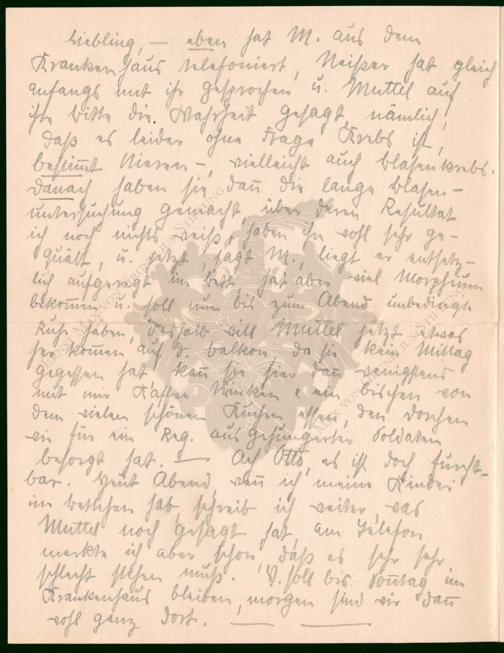 Liebling, – eben hat M. aus dem
Krankenhaus telefoniert, Neißer hat gleich
anfangs mit ihr gesprochen u. Muttel auf
ihre Bitte die Wahrheit gesagt, nämlich,
daß es leider ohne Frage Krebs ist,
bestimmt Nieren-, vielleicht auch Blasenkrebs.
Danach haben sie dann die lange Blasen-
untersuchung gemacht, über deren Resultat
ich noch nichts weiß, haben ihn wohl sehr ge-
quält, u. jetzt, sagt M., liegt er entsetz-
lich aufgeregt im Bett, hat aber viel Morphium
bekommen u. soll nun bis zum Abend unbedingte
Ruhe haben, deshalb will Muttel jetzt etwas
her kommen auf d. Balkon, da sie kein Mittag
gegessen hat kann sie hier dann wenigstens
mit mir Kaffee trinken u. ein bischen von
dem vielen schönen Kuchen essen, den Dorchen
wie für ein Reg. ausgehungerter Soldaten
besorgt hat. — Ach Otto, es ist doch furcht-
bar. Heut Abend wenn ich meine Kinder
im Bettchen hab, schreib ich weiter, was
Muttel noch gesagt hat, am Telefon
merkte ich aber schon, daß es sehr sehr
schlecht stehen muß. V. soll bis Sonntag im
Krankenhaus bleiben, morgen sind wir dann
wohl ganz dort. — —
MAX VON STIFTUNG